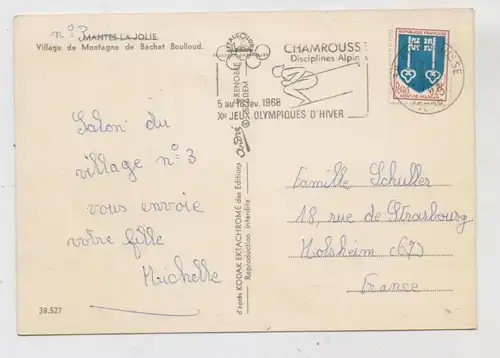 n° 3 MANTES-LA-JOLIE
Village de Montagne de Bachat Boulloud.
CHAMROUSSE
Disciplines Alpines
5 au 18 fev. 1968
Xes JEUX OLYMPIQUES D'HIVER
REPUBLIQUE FRANÇAISE
Salon du
village n° 3
vous envoie
votre fille
Michelle
38.527
d'après KODAK EKTACHROME des Editions
Reproduction interdite
Famille Schuller
18, rue de Strasbourg
Molsheim (67)
France